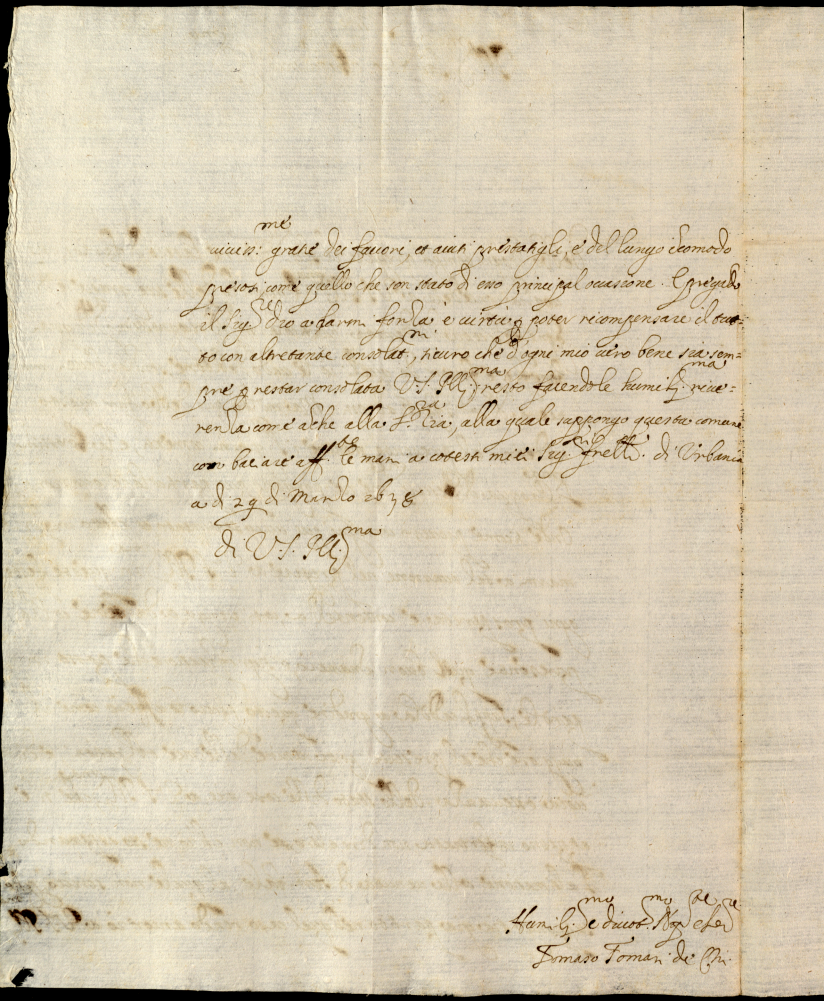 viviss:me gratie dei favori, et aiuti prestatigli, e del lungo icomodo
presosi come quello che son stato di esso principal occasione. E pregado
il Sigre Dio a farmi forza e virtù p poter ricompensare il tut-
to con altretante consolatni, sicuro che d'ogni mio vero bene sia sem-
pre p restar consolata V.S. Illma resto facendole humilma rive-
renza come ache alla Sra Zia, alla quale suppongo questa comune
con baciare affte le mani a cotesti miei Sigri frelli. di Urbania
a di 29 di Marzo 1638
di V.S. Illma
Humilmo e divotmo Npte e Sre
Tomaso Tomasi de